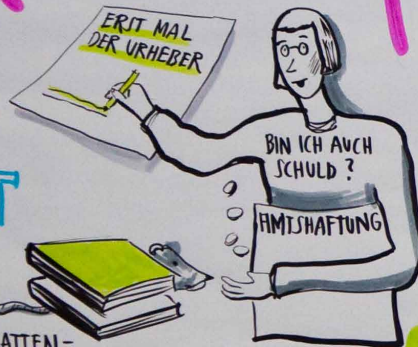 ERST MAL
DER URHEBER
BIN ICH AUCH
SCHULD?
AMTSHAFTUNG
ATTEN-